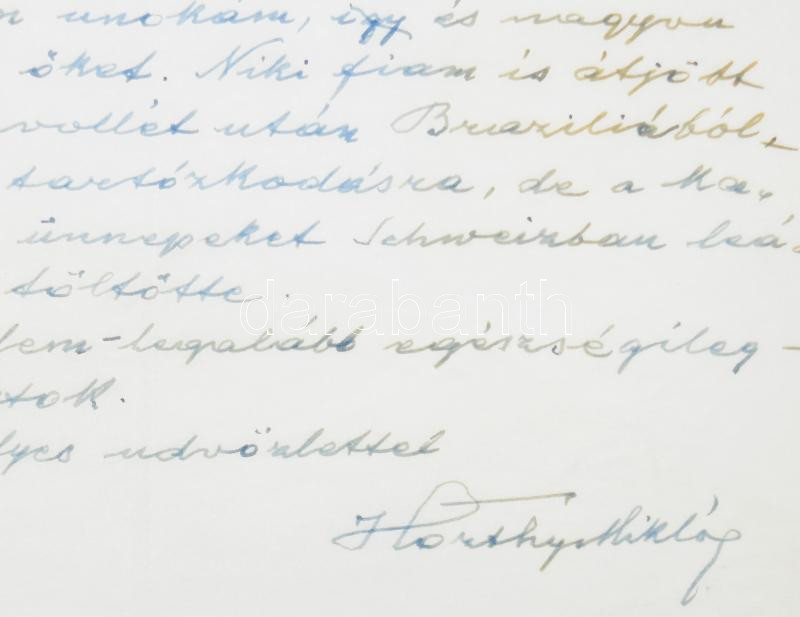 unokám, így és nagyon
őket. Niki fiam is átjött
után Braziliából,
tartózkodásra, de a Ka-
ünnepeket Schweizban leá-
töltötte.
darabanth
legalább egészségileg -
tok.
lyes udvözlettel
Horthy Miklós